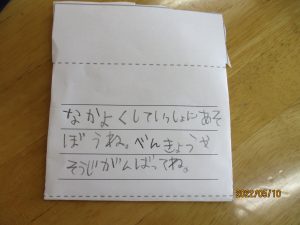 なかよくしていっしょにあそ
ぼうね。べんきょうや
そうじがんばってね。
2022/05/10